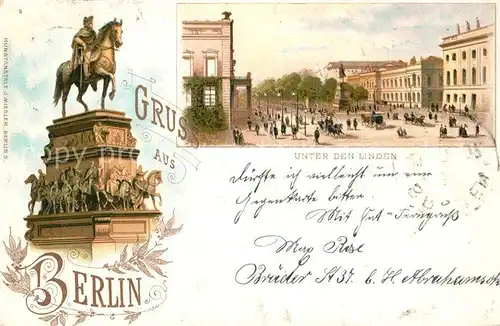 KUNSTANSTALT J. MIESLER, BERLIN S.
GRUSS
AUS
BERLIN
UNTER DEN LINDEN
Dürfte ich vielleicht um eine
Gegenkarte bitten.
Mit Gut-
Max Rose
Brüder St 37. b. H. Abrahamsohn